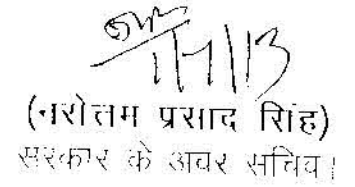 1/7/13
(नरोत्तम प्रसाद सिंह)
सरकार के अवर सचिव।